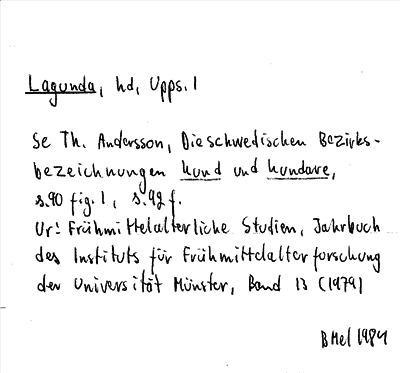 Lagunda, hd, Upps. l
Se Th. Andersson, Die schwedischen Bezirks-
bezeichnungen hund und hundare,
s. 90 fig. 1, s. 92 f.
Ur: Frühmittelalterliche Studien, Jahrbuch
des Instituts für Frühmittelalterforschung
der Universität Münster, Band 13 (1979)
BMel 1984